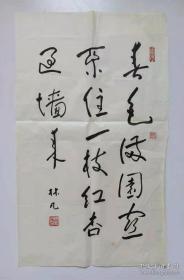 春色满園關
不住一枝红杏
出墙来
林凡